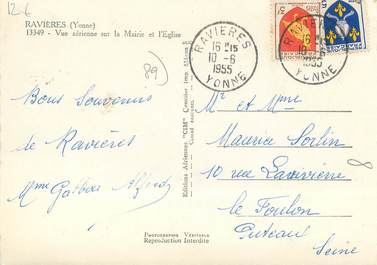 12.6
RAVIÈRES (Yonne)
13349 - Vue aérienne sur la Mairie et l'Eglise
89)
RAVIERES
16 H 15
10 - 6
1955
YONNE
16
10 - 6
1955
YONNE
Bons Souvenirs
de Ravières
Mme Alfred
Editions Aériennes "CIM"
Mr et Mme
Maurice Sorlin
10 rue
le Foulon
Puteau
Seine
PHOTOGRAPHIE VÉRITABLE
Reproduction Interdite